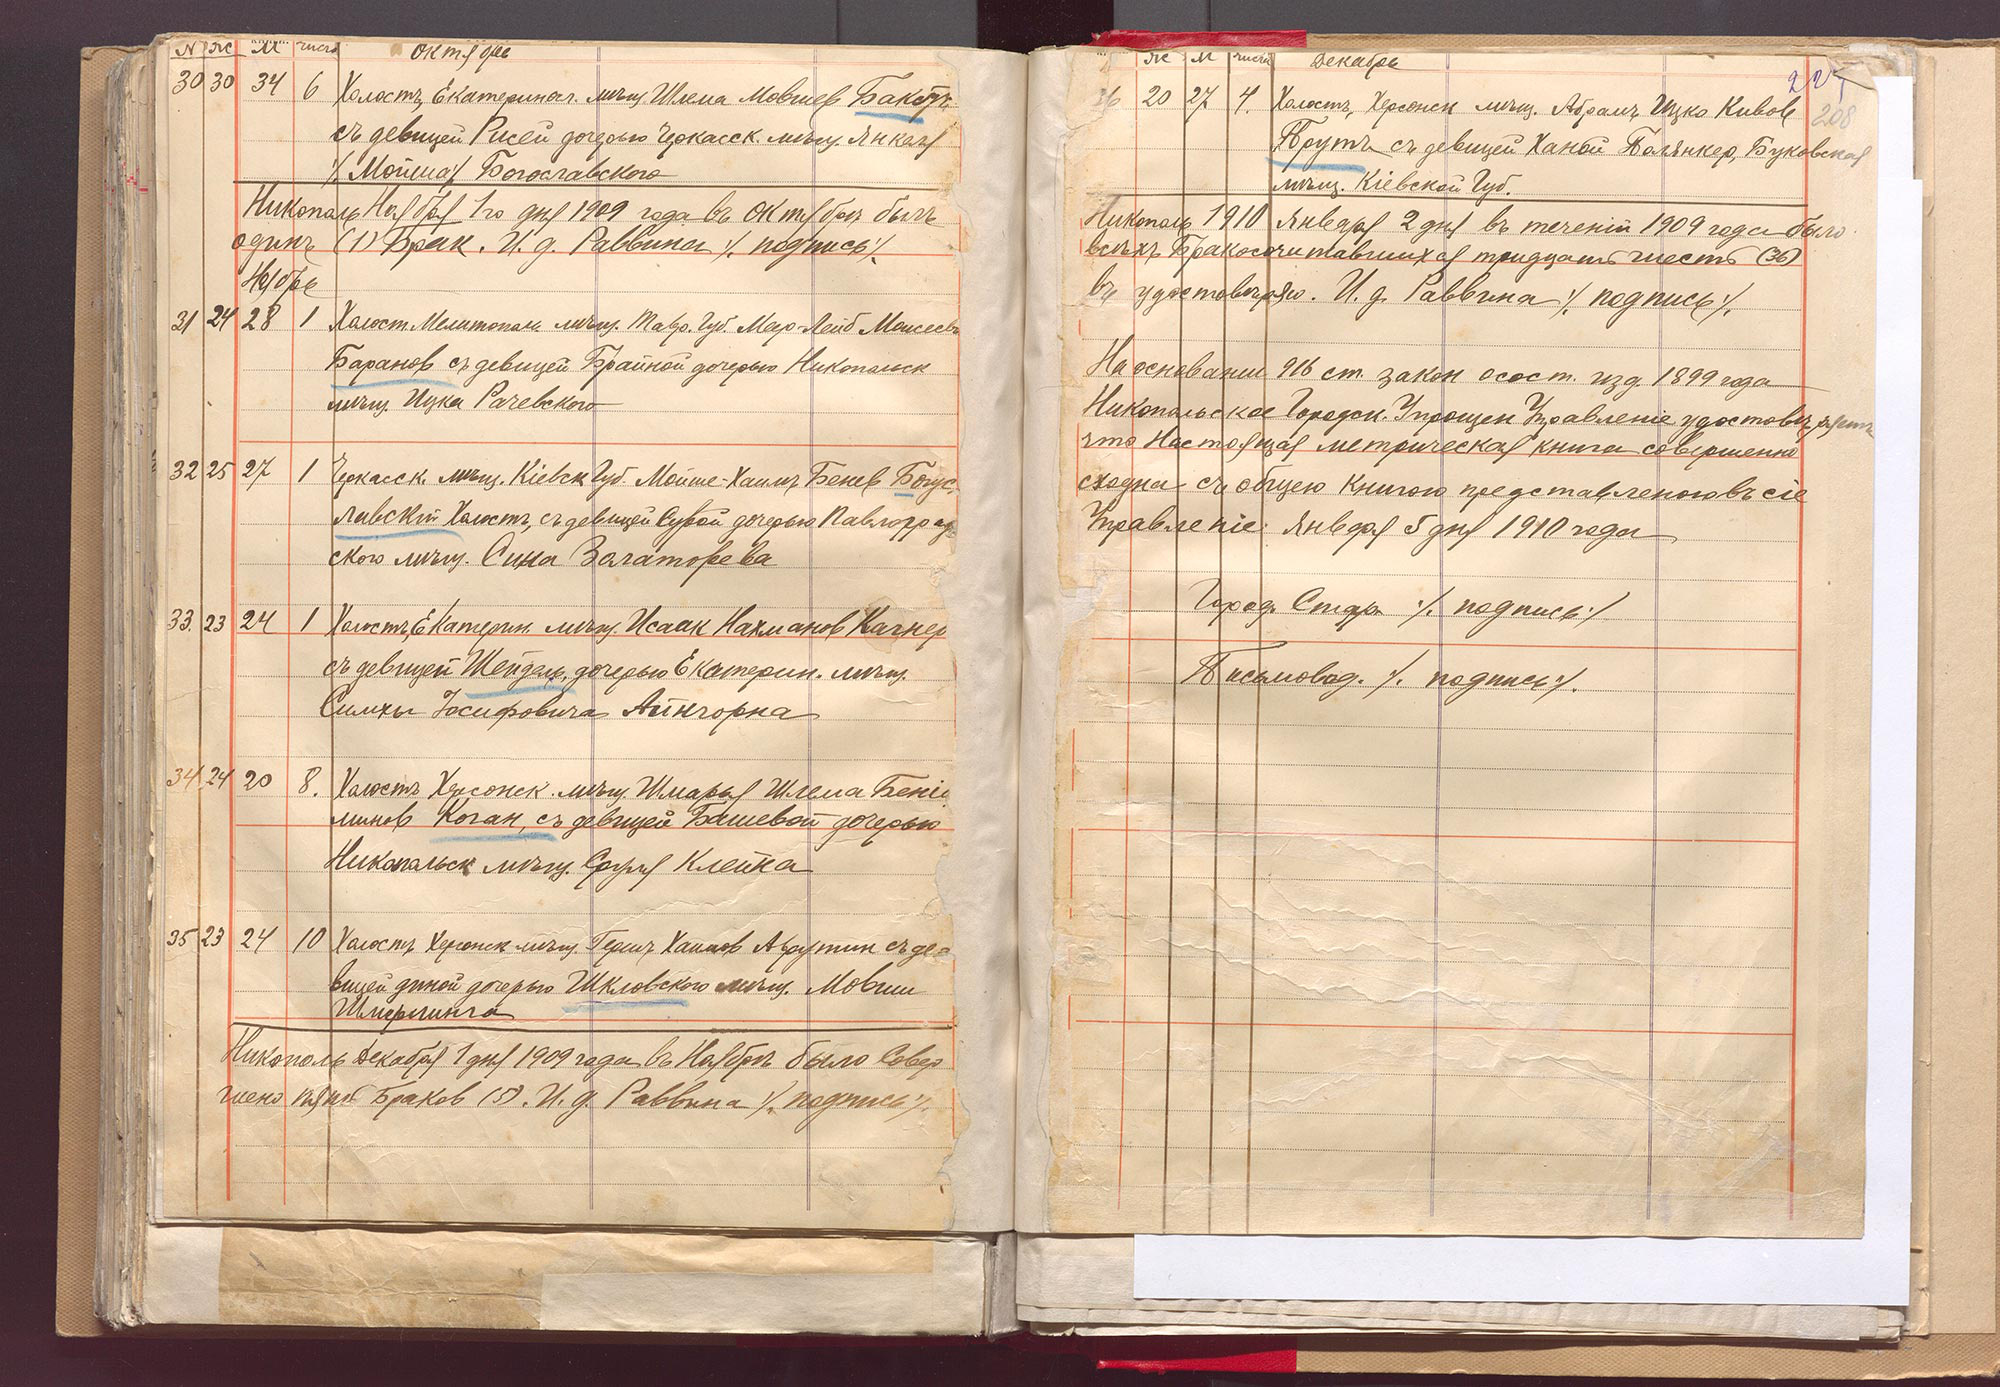 N Ж М число Октябрь
30 30 34 6 Холостъ Екатериносл. мѣщ. Шлема Мовшев
съ девицей Рисей дочерью Черкасск. мѣщ. Янкеля
/ Мойша / Богославского
Никополь Ноября 1го дня 1909 года въ Октябрѣ былъ
одинъ (1) Брак. И. д. Раввина ·/. подпись ·/.
Ноябрь
31 24 28 1 Холост. Мелитополь мѣщ. Тавр. Губ. Меер-Лейб Моисеевъ
Баранов съ девицей Брайной дочерью Никопольск
мѣщ. Ицка Рачевского
32 25 27 1 Черкасск. мѣщ. Кіевск Губ. Мойше-Хаимъ Бенев Богус-
лавскій Холостъ, съ девицей Сурой дочерью Павлоград
ского мѣщ. Сина Залаторева
33. 23 24 1 Холостъ, Екатерин. мѣщ. Исаак Нахманов Качнер
съ девицей Шейдель, дочерью Екатерин. мѣщ.
Симхы Іосифовича Айнгорна
34 24 20 8. Холостъ Херсонск. мѣщ. Шмарья Шлема Бені
минов Коган, съ девицей Башевой дочерью
Никопольск мѣщ. Сруля Клейна
35 23 24 10 Холостъ Херсонск мѣщ. Герш Хаимов Аврутин съ де-
вицей диной дочерью Шкловского мѣщ. Мовши
Шмерлинга
Никополь Декабря 1 дня 1909 года въ Ноябрѣ было Совер
шено пять Браков (5). И. д. Раввина ·/. подпись ·/.
Ж М число Декабрь
208
36 20 27 4. Холостъ, Херсонск мѣщ. Абрамъ Ицко Кивов
Прутъ съ девицей Ханой Полянкер, Буковская
мѣщ. Кіевской Губ.
Никополь 1910 Января 2 дня въ теченіи 1909 года было
всѣхъ Бракосочитавшихся тридцать шесть (36)
въ удостовѣряю. И. д. Раввина ·/. подпись ·/.
На основании 916 ст. закон о сост. изд. 1899 года
Никопольское Городск. Упрощен Управленіе удостовѣряетъ
что Настоящая метрическая книга совершенно
сходна съ общею книгою представленою въ сіе
Управленіе Января 5 дня 1910 года
Город. Стар. ·/. подпись ·/.
Письмовод. ·/. подпись ·/.